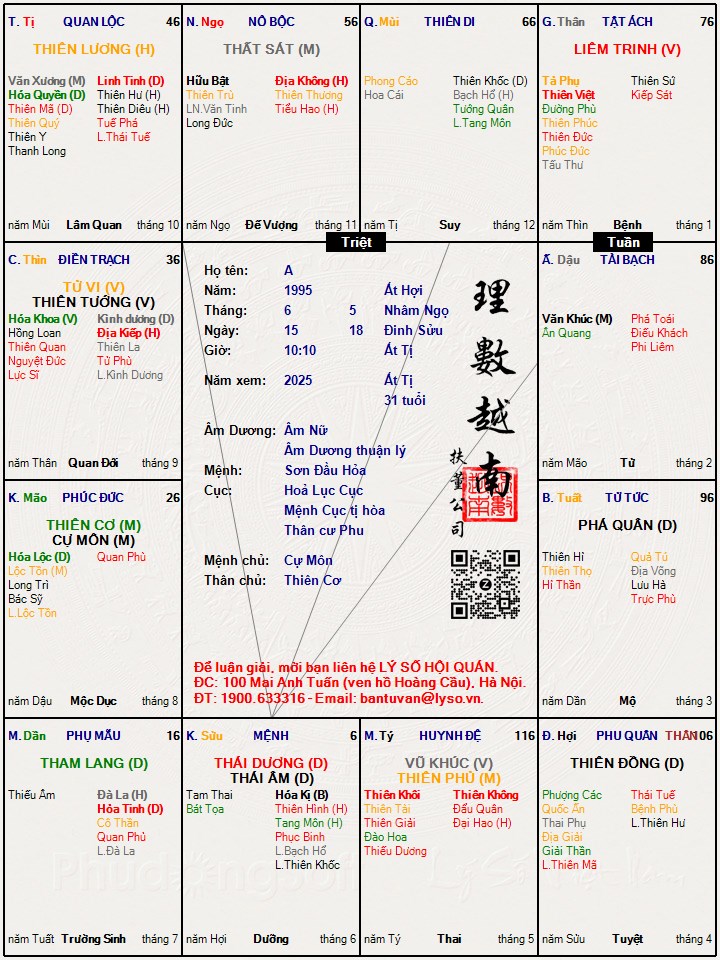 T. Tị QUAN LỘC 46
THIÊN LƯƠNG (H)
Văn Xương (M) Linh Tinh (D)
Hóa Quyền (D) Thiên Hư (H)
Thiên Mã (D) Thiên Diêu (H)
Thiên Quý Tuế Phá
Thiên Y L.Thái Tuế
Thanh Long
năm Mùi Lâm Quan tháng 10
N. Ngọ NÔ BỘC 56
THẤT SÁT (M)
Hữu Bật Địa Không (H)
Thiên Trù Thiên Thương
LN.Văn Tinh Tiểu Hao (H)
Long Đức
năm Ngọ Đế Vượng tháng 11
Q. Mùi THIÊN DI 66
Phong Cáo Thiên Khốc (D)
Hoa Cái Bạch Hổ (H)
Tướng Quân
L.Tang Môn
năm Tị Suy tháng 12
G. Thân TẬT ÁCH 76
LIÊM TRINH (V)
Tả Phụ Thiên Sứ
Thiên Việt Kiếp Sát
Đường Phù
Thiên Phúc
Thiên Đức
Phúc Đức
Tấu Thư
năm Thìn Bệnh tháng 1
Triệt
Tuần
C. Thìn ĐIỀN TRẠCH 36
TỬ VI (V)
THIÊN TƯỚNG (V)
Hóa Khoa (V) Kình dương (D)
Hồng Loan Địa Kiếp (H)
Thiên Quan Thiên La
Nguyệt Đức Tử Phù
Lực Sĩ L.Kình Dương
năm Thân Quan Đới tháng 9
Họ tên: A
Năm: 1995 Ất Hợi
Tháng: 6 5 Nhâm Ngọ
Ngày: 15 18 Đinh Sửu
Giờ: 10:10 Ất Tị
Năm xem: 2025 Ất Tị
31 tuổi
Âm Dương: Âm Nữ
Âm Dương thuận lý
Mệnh: Sơn Đầu Hỏa
Cục: Hoả Lục Cục
Mệnh Cục tị hòa
Thân cư Phu
Mệnh chủ: Cự Môn
Thân chủ: Thiên Cơ
理數越南
扶董公司
Để luận giải, mời bạn liên hệ LÝ SỐ HỘI QUÁN.
ĐC: 100 Mai Anh Tuấn (ven hồ Hoàng Cầu), Hà Nội.
ĐT: 1900.633316 - Email: bantuvan@lyso.vn.
Ấ. Dậu TÀI BẠCH 86
Văn Khúc (M) Phá Toái
Ân Quang Điếu Khách
Phi Liêm
năm Mão Tử tháng 2
K. Mão PHÚC ĐỨC 26
THIÊN CƠ (M)
CỰ MÔN (M)
Hóa Lộc (D) Quan Phù
Lộc Tồn (M)
Long Trì
Bác Sỹ
L.Lộc Tồn
năm Dậu Mộc Dục tháng 8
B. Tuất TỬ TỨC 96
PHÁ QUÂN (D)
Thiên Hỉ Quả Tú
Thiên Thọ Địa Võng
Hỉ Thần Lưu Hà
Trực Phù
năm Dần Mộ tháng 3
M. Dần PHỤ MẪU 16
THAM LANG (D)
Thiếu Âm Đà La (H)
Hỏa Tinh (D)
Cô Thần
Quan Phủ
L.Đà La
năm Tuất Trường Sinh tháng 7
K. Sửu MỆNH 6
THÁI DƯƠNG (D)
THÁI ÂM (D)
Tam Thai Hóa Kị (B)
Bát Tọa Thiên Hình (H)
Tang Môn (H)
Phục Binh
L.Bạch Hổ
L.Thiên Khốc
năm Hợi Dưỡng tháng 6
M. Tý HUYNH ĐỆ 116
VŨ KHÚC (V)
THIÊN PHỦ (M)
Thiên Khôi Thiên Không
Thiên Tài Đẩu Quân
Thiên Giải Đại Hao (H)
Đào Hoa
Thiếu Dương
năm Tý Thai tháng 5
Đ. Hợi PHU QUÂN THÂN 106
THIÊN ĐỒNG (D)
Phượng Các Thái Tuế
Quốc Ấn Bệnh Phù
Thai Phụ L.Thiên Hư
Địa Giải
Giải Thần
L.Thiên Mã
năm Sửu Tuyệt tháng 4